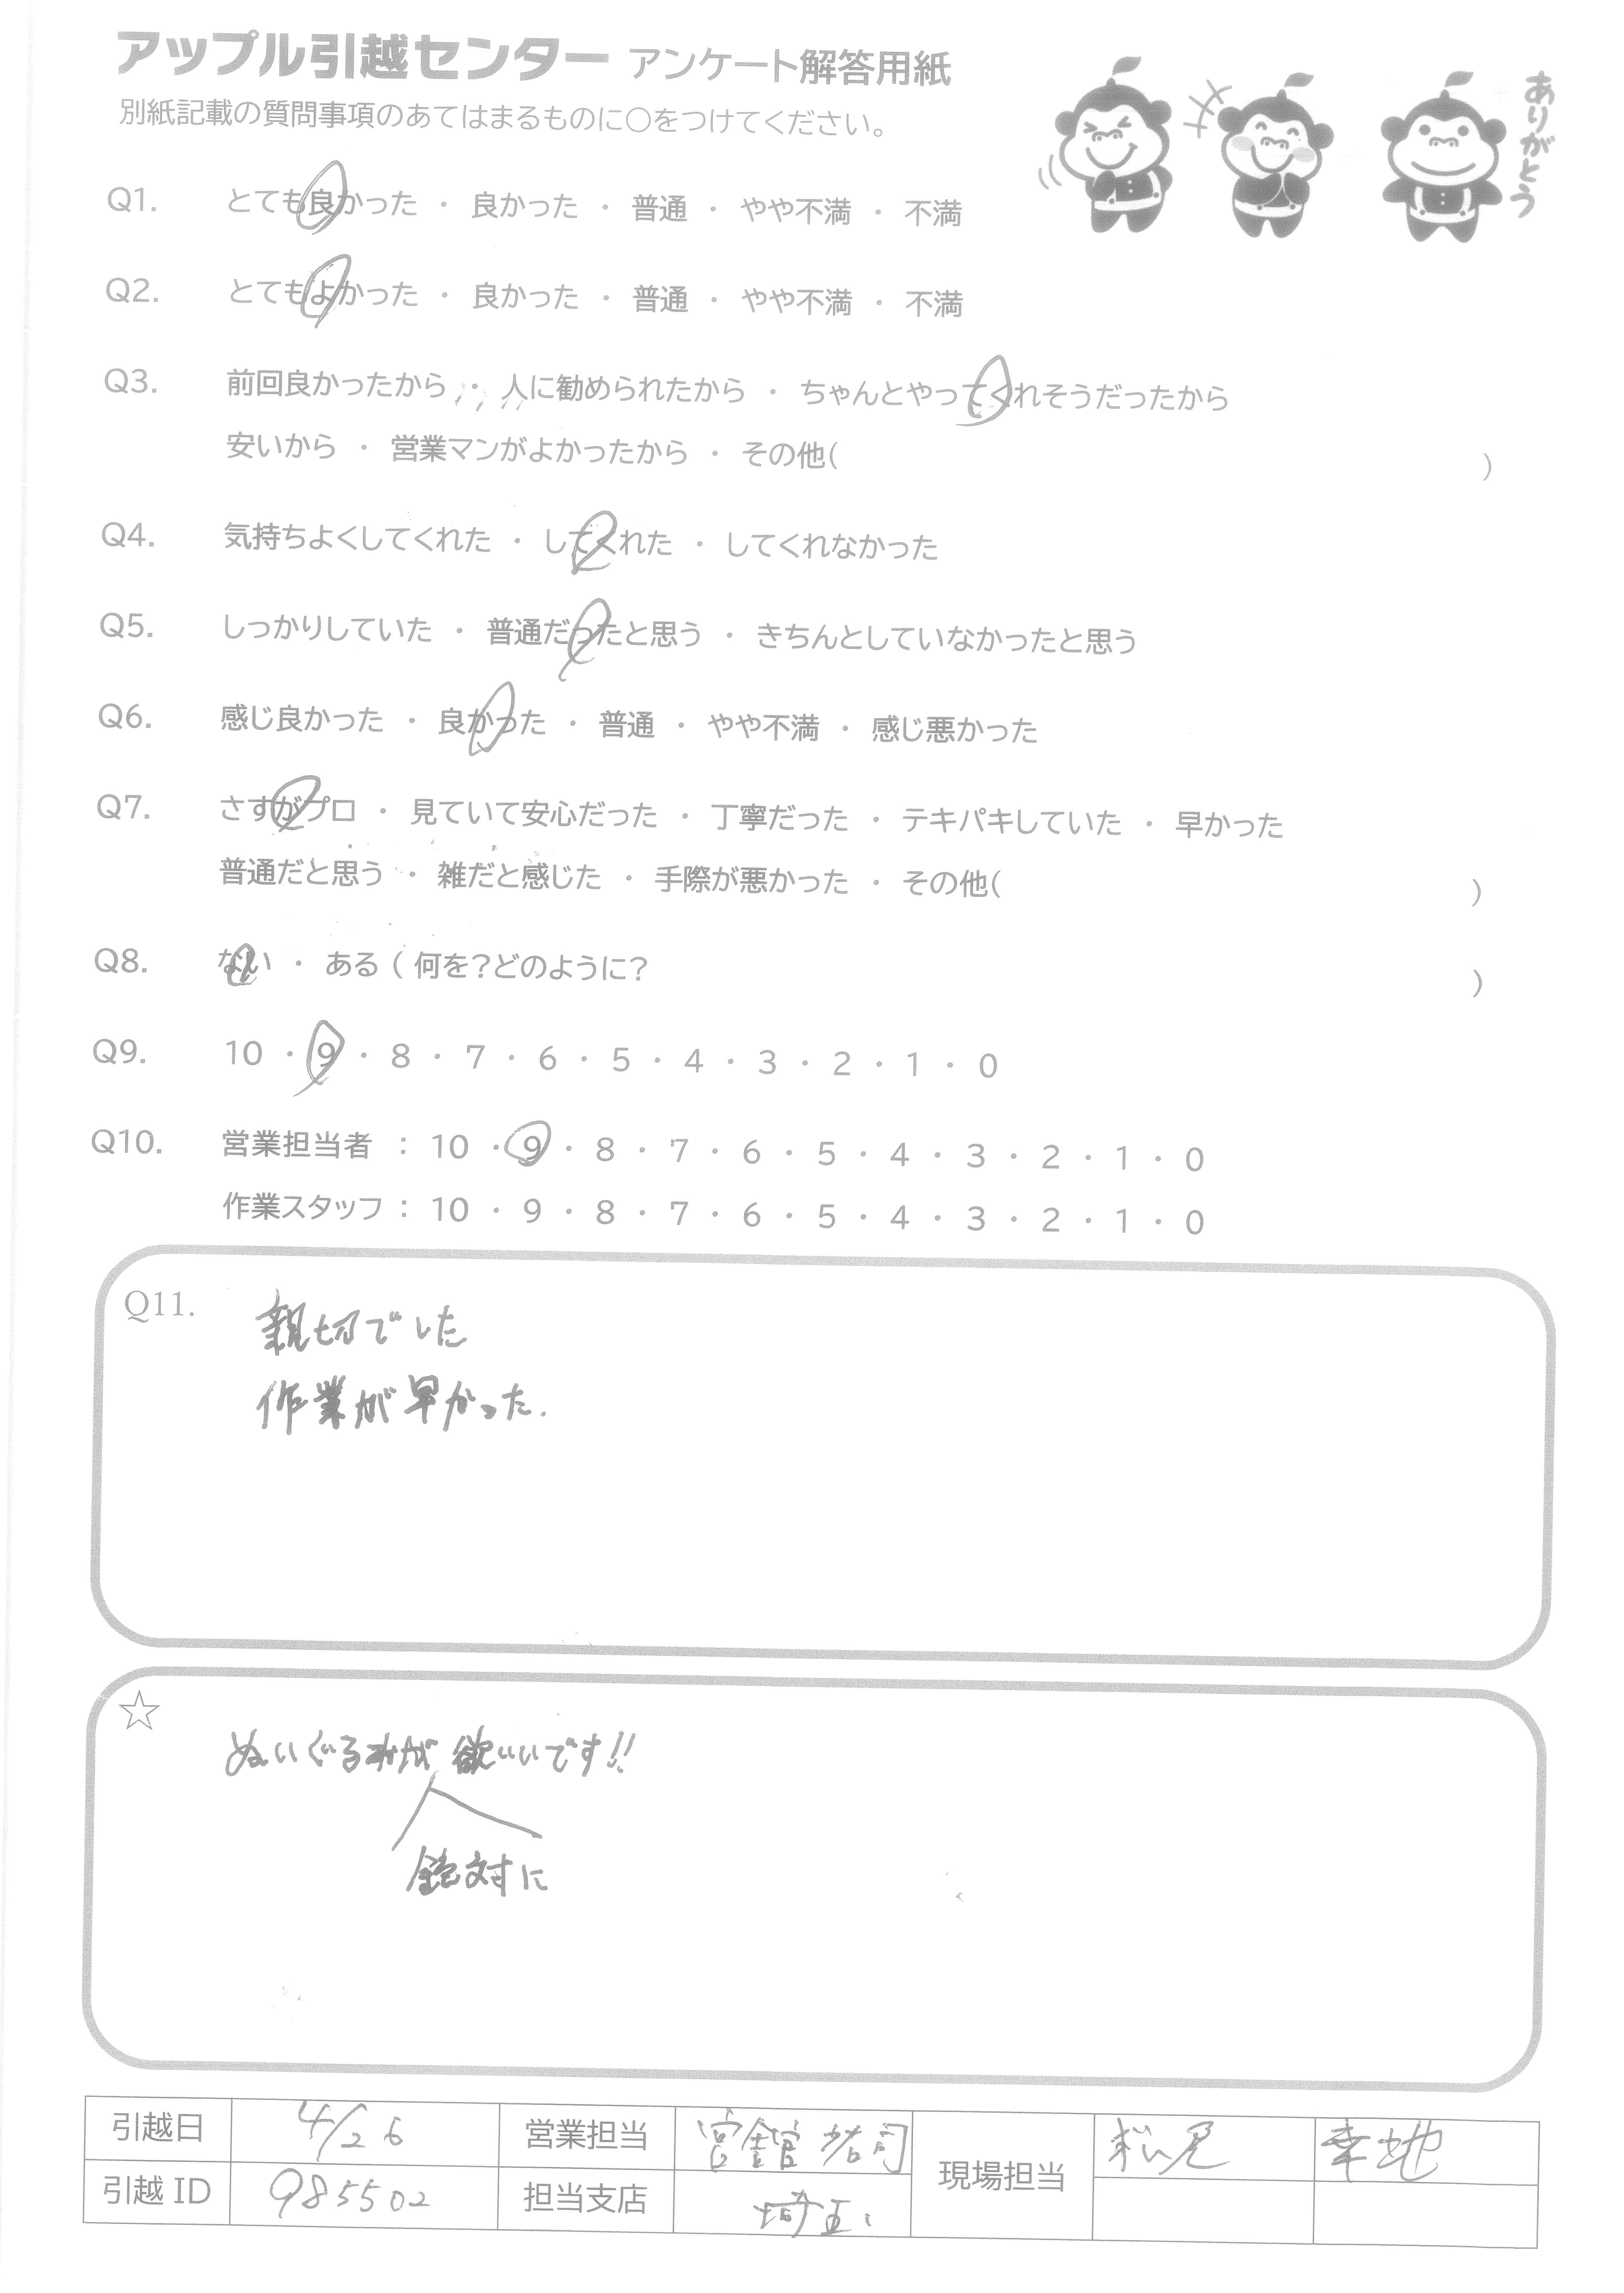 アップル引越センター アンケート解答用紙
別紙記載の質問事項のあてはまるものに〇をつけてください。
ありがとう
Q1. とても良かった ・ 良かった ・ 普通 ・ やや不満 ・ 不満
Q2. とてもよかった ・ 良かった ・ 普通 ・ やや不満 ・ 不満
Q3. 前回良かったから ・ 人に勧められたから ・ ちゃんとやってくれそうだったから
安いから ・ 営業マンがよかったから ・ その他( )
Q4. 気持ちよくしてくれた ・ してくれた ・ してくれなかった
Q5. しっかりしていた ・ 普通だったと思う ・ きちんとしていなかったと思う
Q6. 感じ良かった ・ 良かった ・ 普通 ・ やや不満 ・ 感じ悪かった
Q7. さすがプロ ・ 見ていて安心だった ・ 丁寧だった ・ テキパキしていた ・ 早かった
普通だと思う ・ 雑だと感じた ・ 手際が悪かった ・ その他( )
Q8. ない ・ ある ( 何を?どのように? )
Q9. 10 ・ 9 ・ 8 ・ 7 ・ 6 ・ 5 ・ 4 ・ 3 ・ 2 ・ 1 ・ 0
Q10. 営業担当者 : 10 ・ 9 ・ 8 ・ 7 ・ 6 ・ 5 ・ 4 ・ 3 ・ 2 ・ 1 ・ 0
作業スタッフ : 10 ・ 9 ・ 8 ・ 7 ・ 6 ・ 5 ・ 4 ・ 3 ・ 2 ・ 1 ・ 0
Q11. 親切でした
作業が早かった.
☆ ぬいぐるみが 欲いいです!!
絶対に
引越日 4/26 営業担当 現場担当 松尾 幸地
引越 ID 985502 担当支店 埼玉